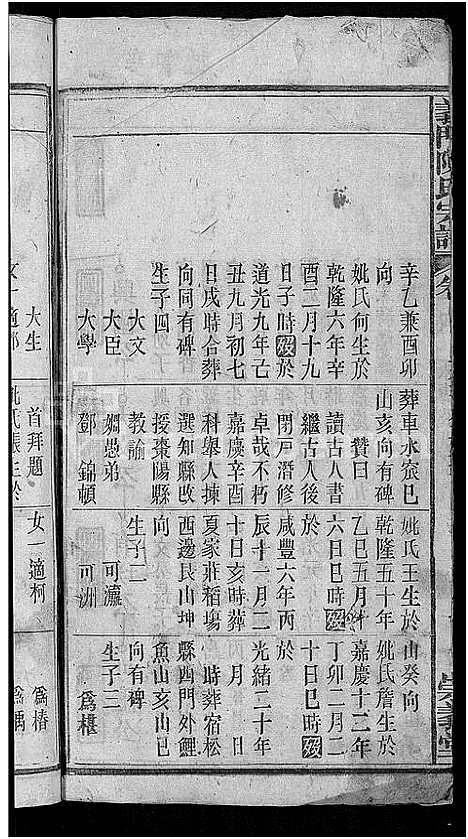 義門陳氏宗譜
崇義堂
辛乙兼酉卯
向
妣氏何生於
乾隆六年辛
酉二月十九
日子時歿於
道光九年己
丑九月初七
日戌時合葬
向同有碑
生子四
大文
大臣
大學
葬車水窊巳
山亥向有碑
贊曰
讀古人書
繼古人後
閉戶潛修
卓哉不朽
嘉慶辛酉
科舉人揀
選知縣改
授棗陽縣
教諭
姻愚弟
鄧錦頓
妣氏王生於
乾隆五十年
乙巳五月十
六日巳時歿
於
咸豐六年丙
辰十一月二
十日亥時葬
夏家莊稻塲
西邊艮山坤
向
生子二
可瀛
可洲
山癸向
妣氏詹生於
嘉慶十二年
丁卯二月二
十日巳時歿
於
光緒三十年
月日
時葬宿松
縣西門外鯉
魚山亥山巳
向有碑
生子三
爲椹
大生
女一適
首拜題
氏張生於
女一適柯
爲椿
爲